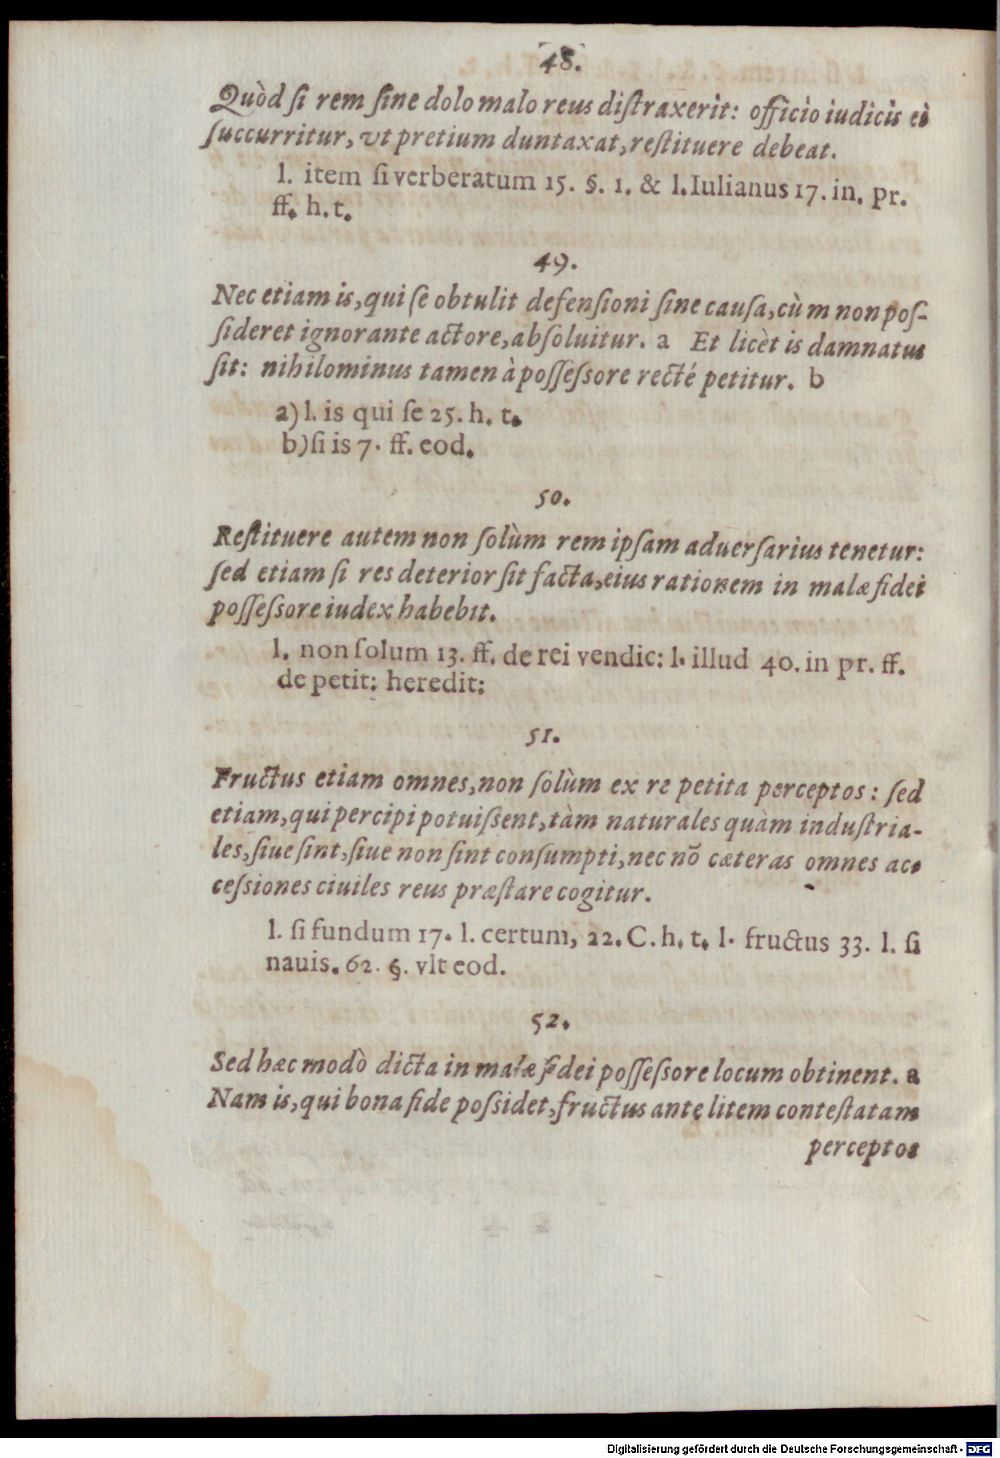 48.
Quòd ſi rem ſine dolo malo reus diſtraxerit: officio iudicis ei
ſuccurritur, vt pretium duntaxat, reſtituere debeat.
l. item ſi verberatum 15. §. 1. & l. Iulianus 17. in. pr.
ff. h. t.
49.
Nec etiam is, qui ſe obtulit defenſioni ſine cauſa, cùm non poſ-
ſideret ignorante actore, abſoluitur. a Et licèt is damnatus
ſit: nihilominus tamen à poſſeſsore recté petitur. b
a) l. is qui ſe 25. h. t.
b) ſi is 7. ff. eod.
50.
Reſtituere autem non ſolùm rem ipſam aduerſarius tenetur:
ſed etiam ſi res deterior ſit facta, eius rationem in malæ fidei
poſſeſsore iudex habebit.
l. non ſolum 13. ff. de rei vendic: l. illud 40. in pr. ff.
de petit: heredit:
51.
Fructus etiam omnes, non ſolùm ex re petita perceptos: ſed
etiam, qui percipi potuiſsent, tàm naturales quàm induſtria-
les, ſiue ſint, ſiue non ſint conſumpti, nec nō cæteras omnes ac-
ceſsiones ciuiles reus præſtare cogitur.
l. ſi fundum 17. l. certum, 22. C. h. t. l. fructus 33. l. ſi
nauis. 62. §. vlt eod.
52.
Sed hæc modò dicta in malæ fidei poſſeſsore locum obtinent. a
Nam is, qui bona fide poſsidet, fructus ante litem conteſtatam
perceptos
Digitalisierung gefördert durch die Deutsche Forschungsgemeinschaft - DFG